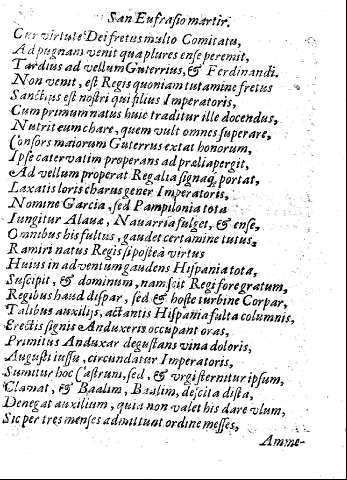 San Eufrasio martir.
Cur virtute Dei fretus multo Comitatu,
Ad pugnam venit qua plures ense peremit,
Tardius ad vellum Guterrius, & Ferdinandi.
Non venit, est Regis quoniam tutamine fretus
Sanctius est nostri qui filius Imperatoris,
Cum primum natus huic traditur ille docendus,
Nutrit eum chare, quem vult omnes superare,
Consors maiorum Guterrus extat honorum,
Ipse catervatim properans ad prælia pergit,
Ad vellum properat Regalia signaq; portat,
Laxatis loris charus gener Imperatoris,
Nomine Garcia, sed Pampilonia tota
Iungitur Alauæ, Nauarria fulget, & ense,
Omnibus his fultus, gaudet certamine tutus,
Ramiri natus Regis si posteà virtus
Huius in adventum gaudens Hispania tota,
Suscipit, & dominum, nam scit Regi fore gratum,
Regibus haud dispar, sed & hoste turbine Corpar,
Talibus auxilijs, actantis Hispania fulta columnis,
Erectis signis Anduxeris occupant oras,
Primitus Anduxar degustans vina doloris,
Augusti iussu, circundatur Imperatoris,
Sumitur hoc Castrum, sed, & vrgi sternitur ipsum,
Clamat, & Baalim, Baalim, descita dista,
Denegat auxilium, quia non valet his dare vlum,
Sic per tres menses admittunt ordine messes,
Amme-